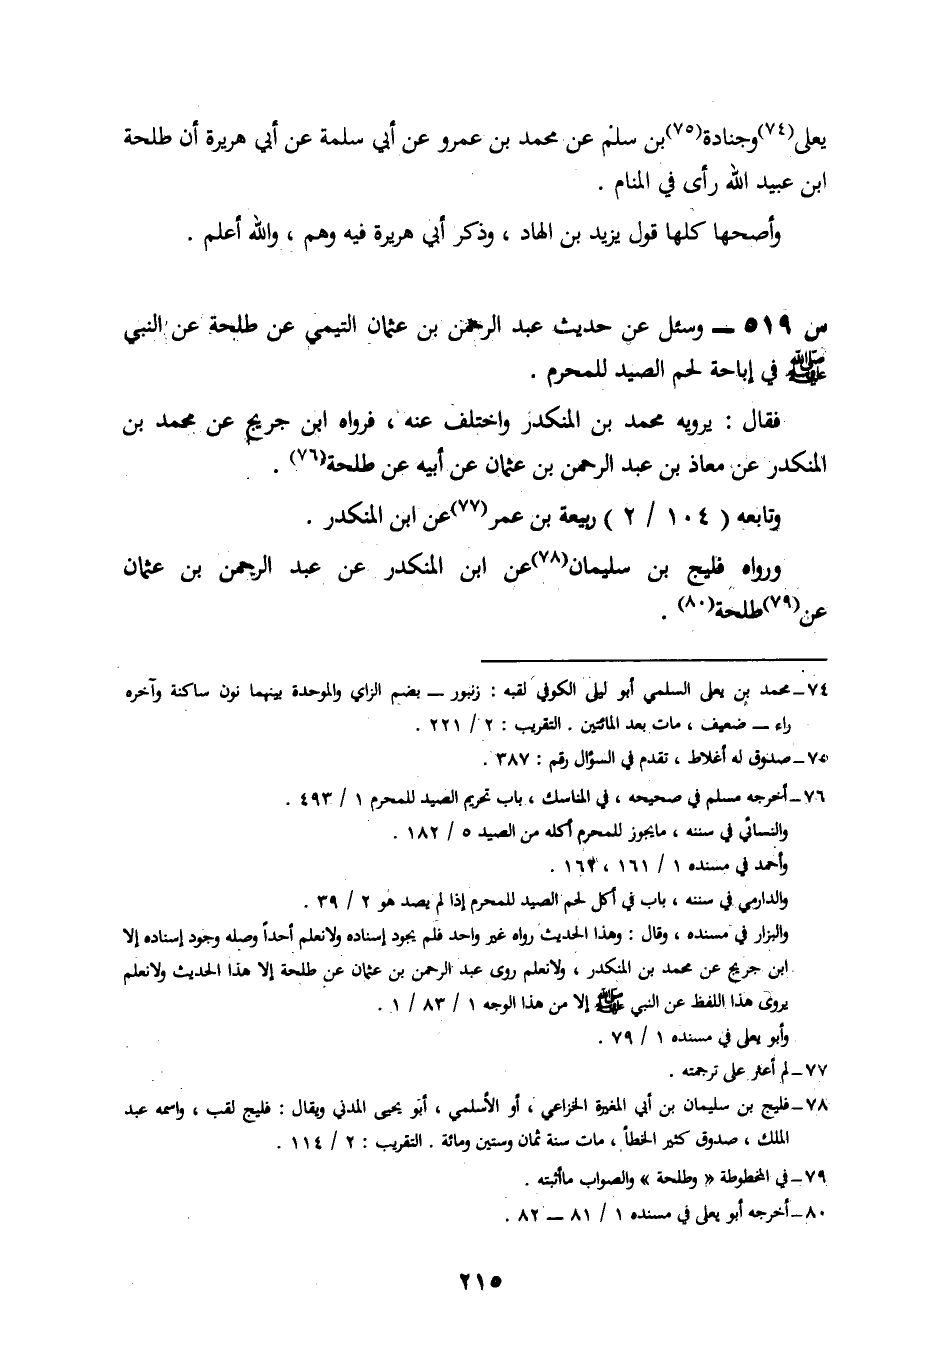 يعلى(٧٤)وجنادة(٧٥)بن سلم عن محمد بن عمرو عن أبي سلمة عن أبي هريرة أن طلحة
ابن عبيد الله رأى في المنام .
وأصحها كلها قول يزيد بن الهاد ، وذكر أبي هريرة فيه وهم ، والله أعلم .
س ٥١٩ ــ وسئل عن حديث عبد الرحمن بن عثمان التيمي عن طلحة عن النبي
ﷺ في إباحة لحم الصيد للمحرم .
فقال : يرويه محمد بن المنكدر واختلف عنه ، فرواه ابن جريج عن محمد بن
المنكدر عن معاذ بن عبد الرحمن بن عثمان عن أبيه عن طلحة(٧٦) .
وتابعه ( ١٠٤ / ٢ ) ربيعة بن عمر(٧٧)عن ابن المنكدر .
ورواه فليح بن سليمان(٧٨)عن ابن المنكدر عن عبد الرحمن بن عثمان
عن(٧٩)طلحة(٨٠) .
٧٤ــ محمد بن يعلى السلمي أبو ليلى الكوفي لقبه : زنبور ــ بضم الزاي والموحدة بينهما نون ساكنة وآخره
راء ــ ضعيف ، مات بعد المائتين . التقريب : ٢ / ٢٢١ .
٧٥ــ صدوق له أغلاط ، تقدم في السؤال رقم : ٣٨٧ .
٧٦ــ أخرجه مسلم في صحيحه ، في المناسك ، باب تحريم الصيد للمحرم ١ / ٤٩٣ .
والنسائي في سننه ، مايجوز للمحرم أكله من الصيد ٥ / ١٨٢ .
وأحمد في مسنده ١ / ١٦١ ، ١٦٢ .
والدارمي في سننه ، باب في أكل لحم الصيد للمحرم إذا لم يصد هو ٢ / ٣٩ .
والبزار في مسنده ، وقال : وهذا الحديث رواه غير واحد فلم يجود إسناده ولانعلم أحداً وصله وجود إسناده إلا
ابن جريج عن محمد بن المنكدر ، ولانعلم روى عبد الرحمن بن عثمان عن طلحة إلا هذا الحديث ولانعلم
يروى هذا اللفظ عن النبي ﷺ إلا من هذا الوجه ١ / ٨٣ / ١ .
وأبو يعلى في مسنده ١ / ٧٩ .
٧٧ــ لم أعثر على ترجمته .
٧٨ــ فليح بن سليمان بن أبي المغيرة الخزاعي ، أو الأسلمي ، أبو يحيى المدني ويقال : فليح لقب ، واسمه عبد
الملك ، صدوق كثير الخطأ ، مات سنة ثمان وستين ومائة . التقريب : ٢ / ١١٤ .
٧٩ــ في المخطوطة « وطلحة » والصواب ماأثبته .
٨٠ــ أخرجه أبو يعلى في مسنده ١ / ٨١ ــ ٨٢ .
٢١٥